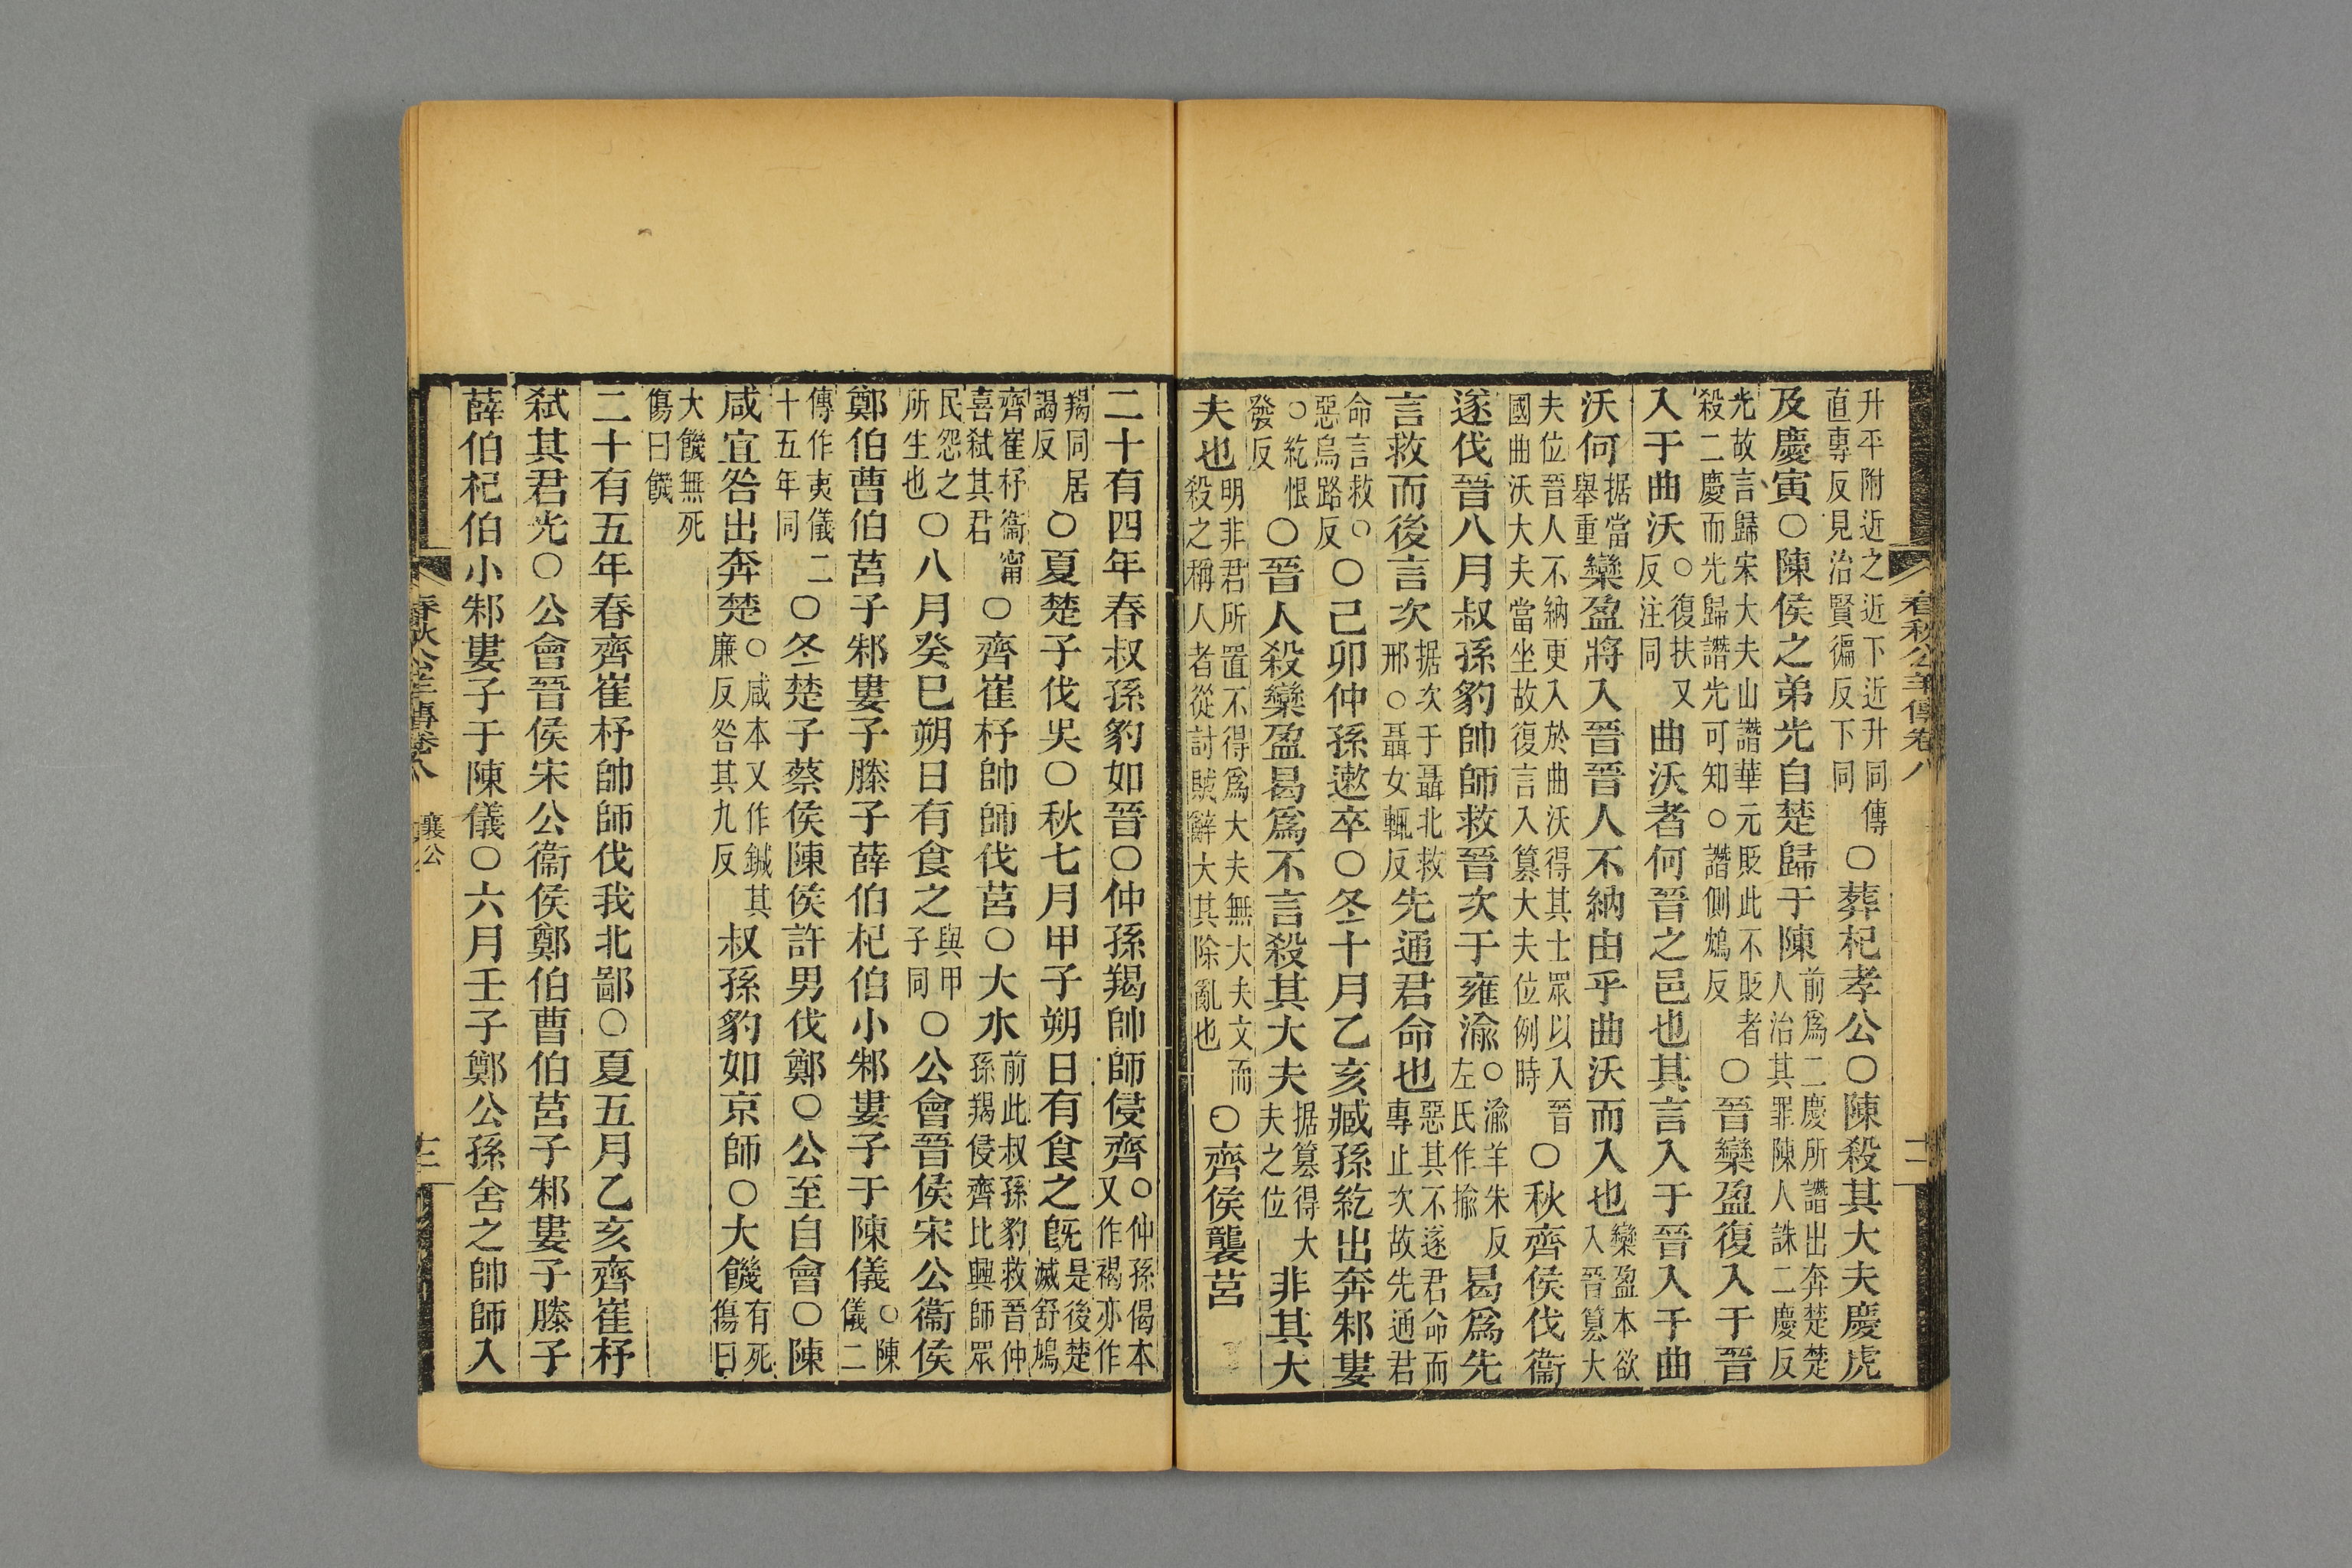 春秋公羊傳卷八 十二
升平附近之近下近升同傳直專反見治賢徧反下同○葬杞孝公○陳殺其大夫慶虎
及慶寅○陳侯之弟光自楚歸于陳前爲二慶所譖出奔楚楚人治其罪陳人誅二慶反
光故言歸宋大夫山譖華元貶此不貶者殺二慶而光歸譖光可知○譖側鴆反○晉欒盈復入于晉
入于曲沃○復扶又反注同曲沃者何晉之邑也其言入于晉入于曲
沃何据當舉重欒盈將入晉晉人不納由乎曲沃而入也欒盈本欲入晉篡大
夫位晉人不納更入於曲沃得其士眾以入晉國曲沃大夫當坐故復言入篡大夫位例時○秋齊侯伐衞
遂伐晉八月叔孫豹帥師救晉次于雍渝○渝羊朱反左氏作揄曷爲先
言救而後言次据次于聶北救邢○聶女輒反先通君命也惡其不遂君命而專止次故先通君
命言救○惡烏路反○己卯仲孫遬卒○冬十月乙亥臧孫紇出奔邾婁
○紇恨發反○晉人殺欒盈曷爲不言殺其大夫据篡得大夫之位非其大
夫也明非君所置不得爲大夫無大夫文而殺之稱人者從討賊辭大其除亂也○齊侯襲莒
二十有四年春叔孫豹如晉○仲孫羯帥師侵齊○仲孫偈本又作褐亦作
羯同居謁反○夏楚子伐吳○秋七月甲子朔日有食之旣是後楚滅舒鳩
齊崔杼衞甯喜弒其君○齊崔杼帥師伐莒○大水前此叔孫豹救晉仲孫羯侵齊比興師眾
民怨之所生也○八月癸巳朔日有食之與甲子同○公會晉侯宋公衞侯
鄭伯曹伯莒子邾婁子滕子薛伯杞伯小邾婁子于陳儀○陳儀二
傳作夷儀二十五年同○冬楚子蔡侯陳侯許男伐鄭○公至自會○陳
咸宜咎出奔楚○咸本又作鍼其廉反咎其九反叔孫豹如京師○大饑有死傷曰
大饑無死傷曰饑
二十有五年春齊崔杼帥師伐我北鄙○夏五月乙亥齊崔杼
弒其君光○公會晉侯宋公衞侯鄭伯曹伯莒子邾婁子滕子
薛伯杞伯小邾婁子于陳儀○六月壬子鄭公孫舍之帥師入
春秋公羊傳卷八 襄公 十三